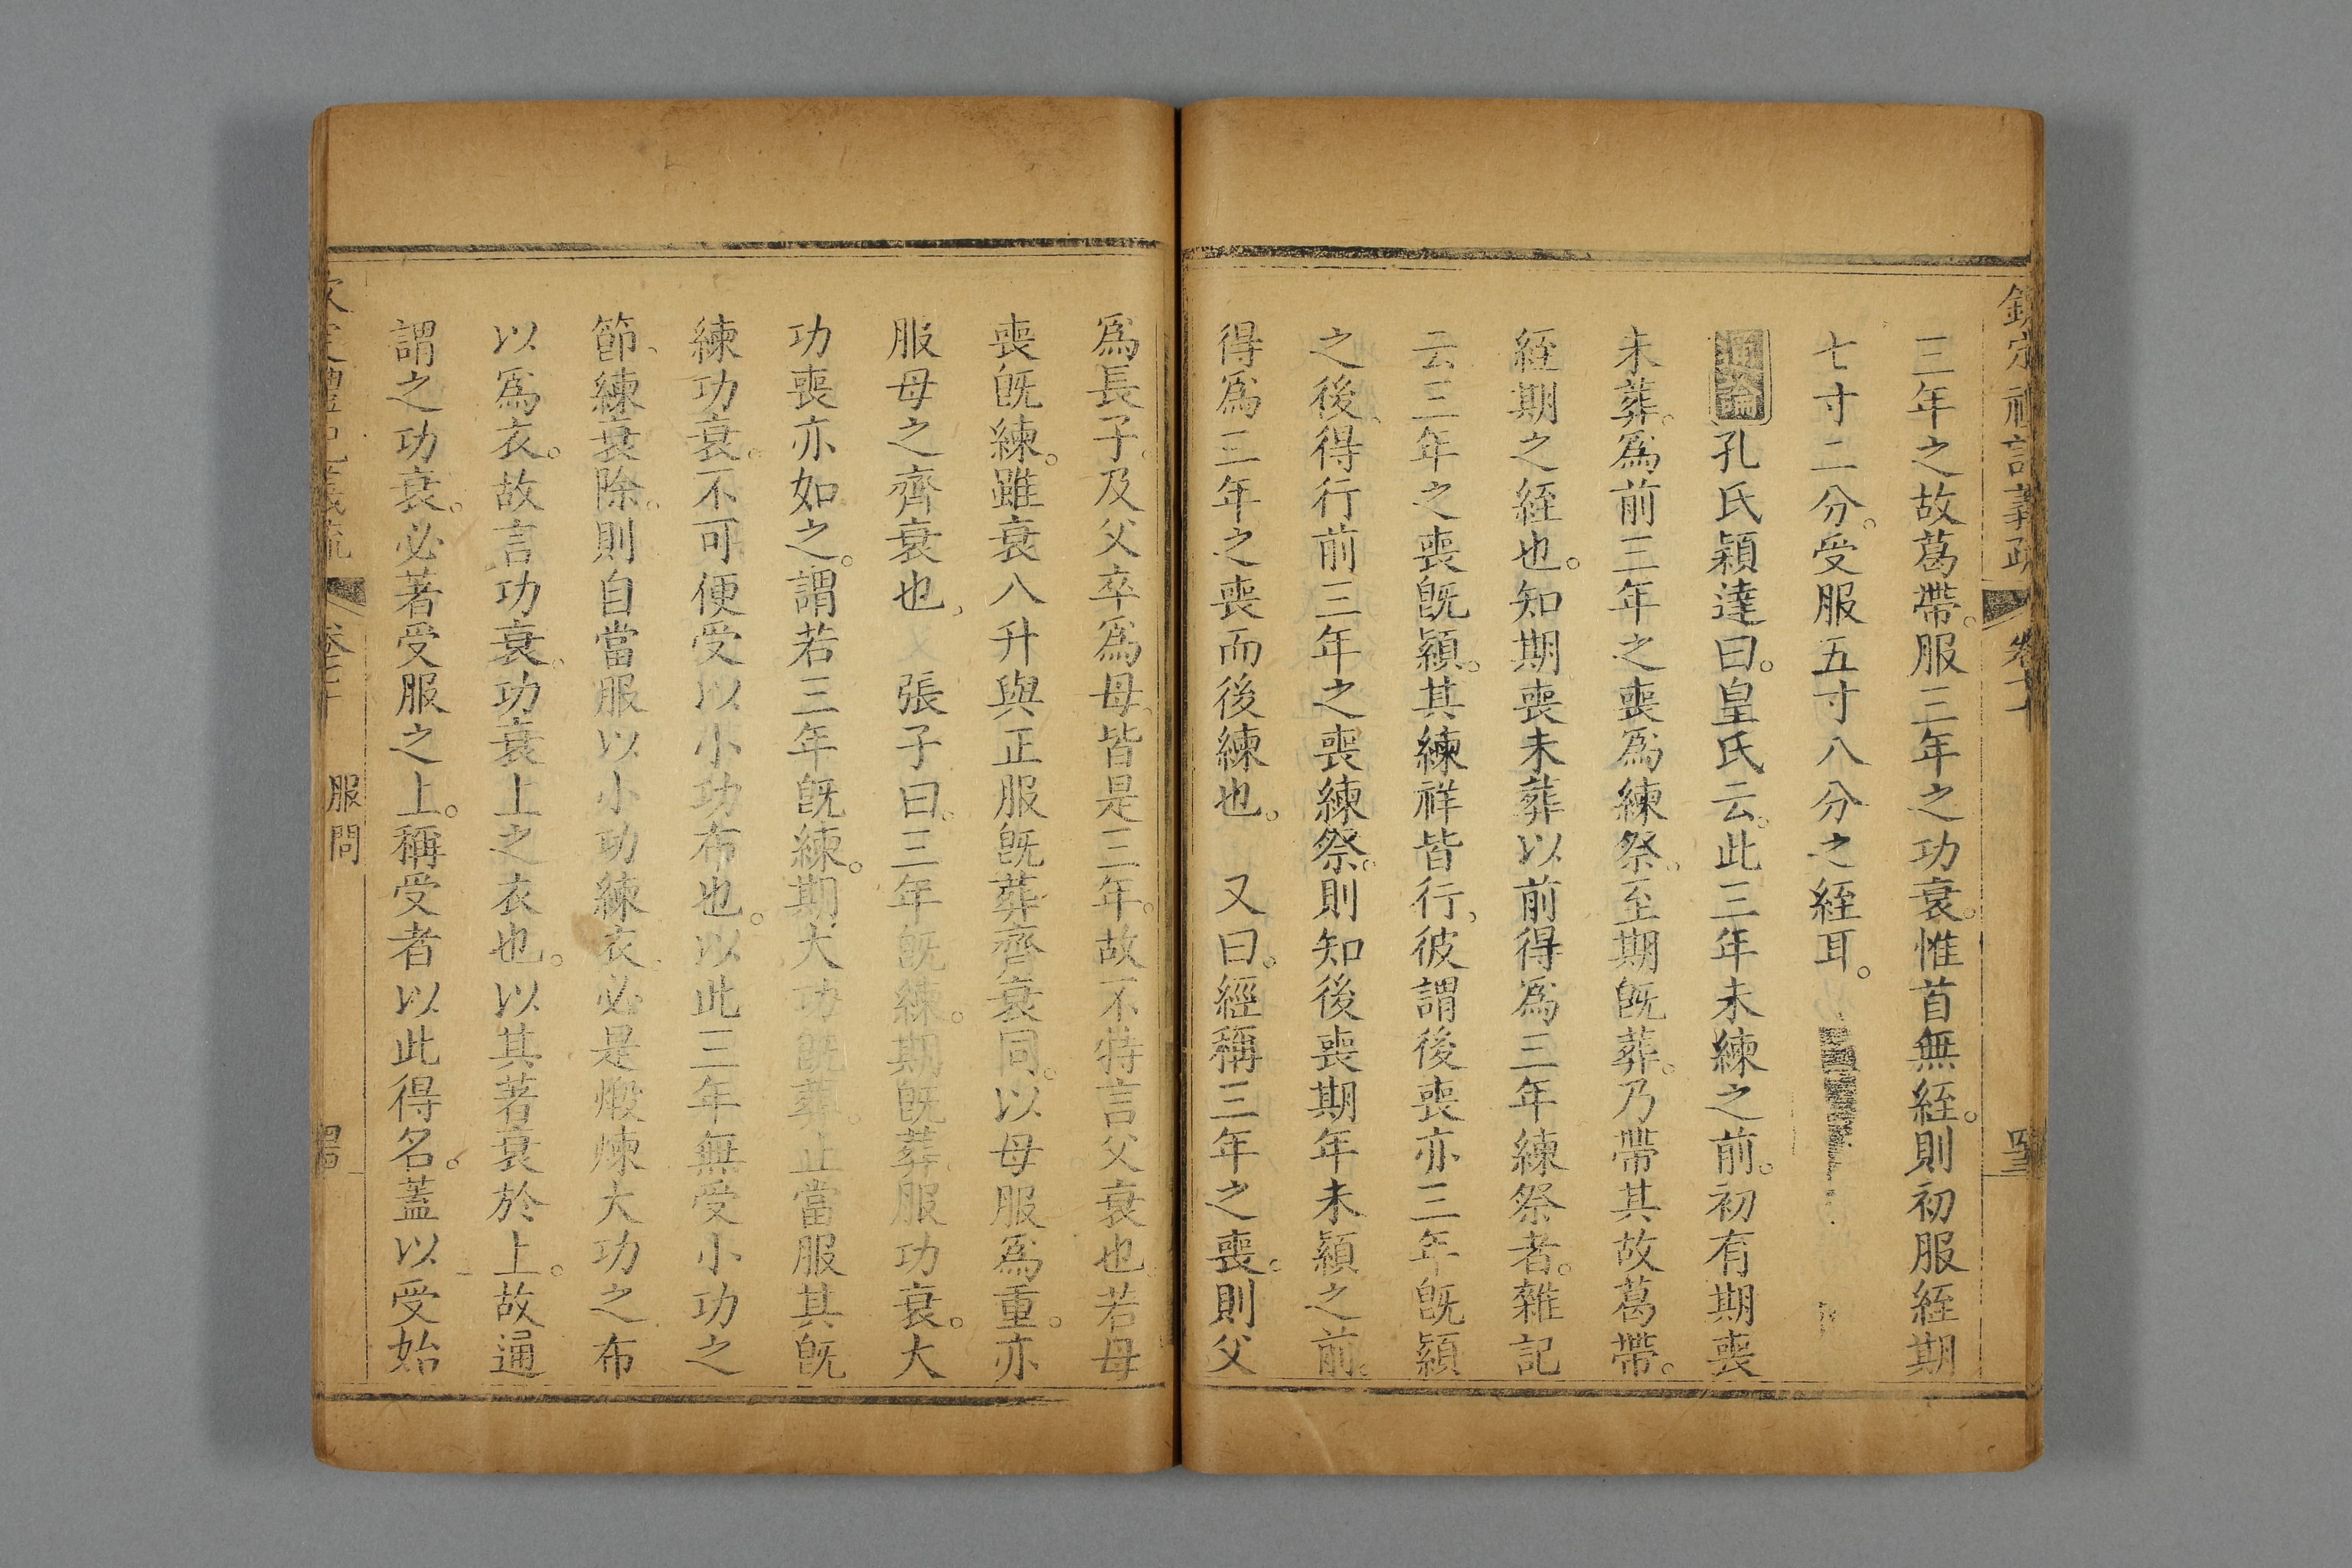 三年之故葛帶。服三年之功衰。惟首無絰。則初服絰期
七寸二分。受服五寸八分之絰耳。
通論孔氏穎達曰。皇氏云。此三年未練之前。初有期喪
未葬。爲前三年之喪爲練祭。至期旣葬。乃帶其故葛帶。
絰期之絰也。知期喪未葬以前得爲三年練祭者。雜記
云三年之喪旣顈。其練祥皆行。彼謂後喪亦三年旣顈
之後。得行前三年之喪練祭。則知後喪期年未顈之前。
得爲三年之喪而後練也。 又曰。經稱三年之喪。則父
爲長子。及父卒爲母。皆是三年。故不特言父衰也。若母
喪旣練。雖衰八升與正服旣葬齊衰同。以母服爲重。亦
服母之齊衰也。 張子曰。三年旣練。期旣葬。服功衰。大
功喪亦如之。謂若三年旣練。期大功旣葬止當服其旣
練功衰。不可便受以小功布也。以此三年無受小功之
節。練衰除。則自當服以小功練衣。必是煅煉大功之布
以爲衣。故言功衰。功衰上之衣也。以其著衰於上。故通
謂之功衰。必著受服之上。稱受者以此得名。蓋以受始
服問